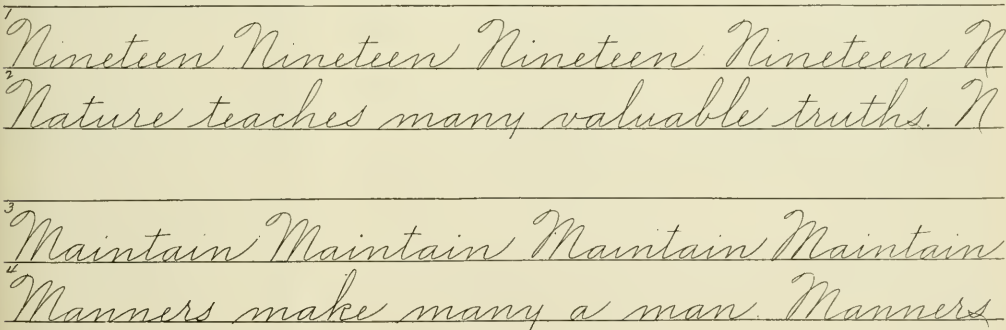 1 Nineteen Nineteen Nineteen Nineteen N
2 Nature teaches many valuable truths. N
3 Maintain Maintain Maintain Maintain
4 Manners make many a man. Manners